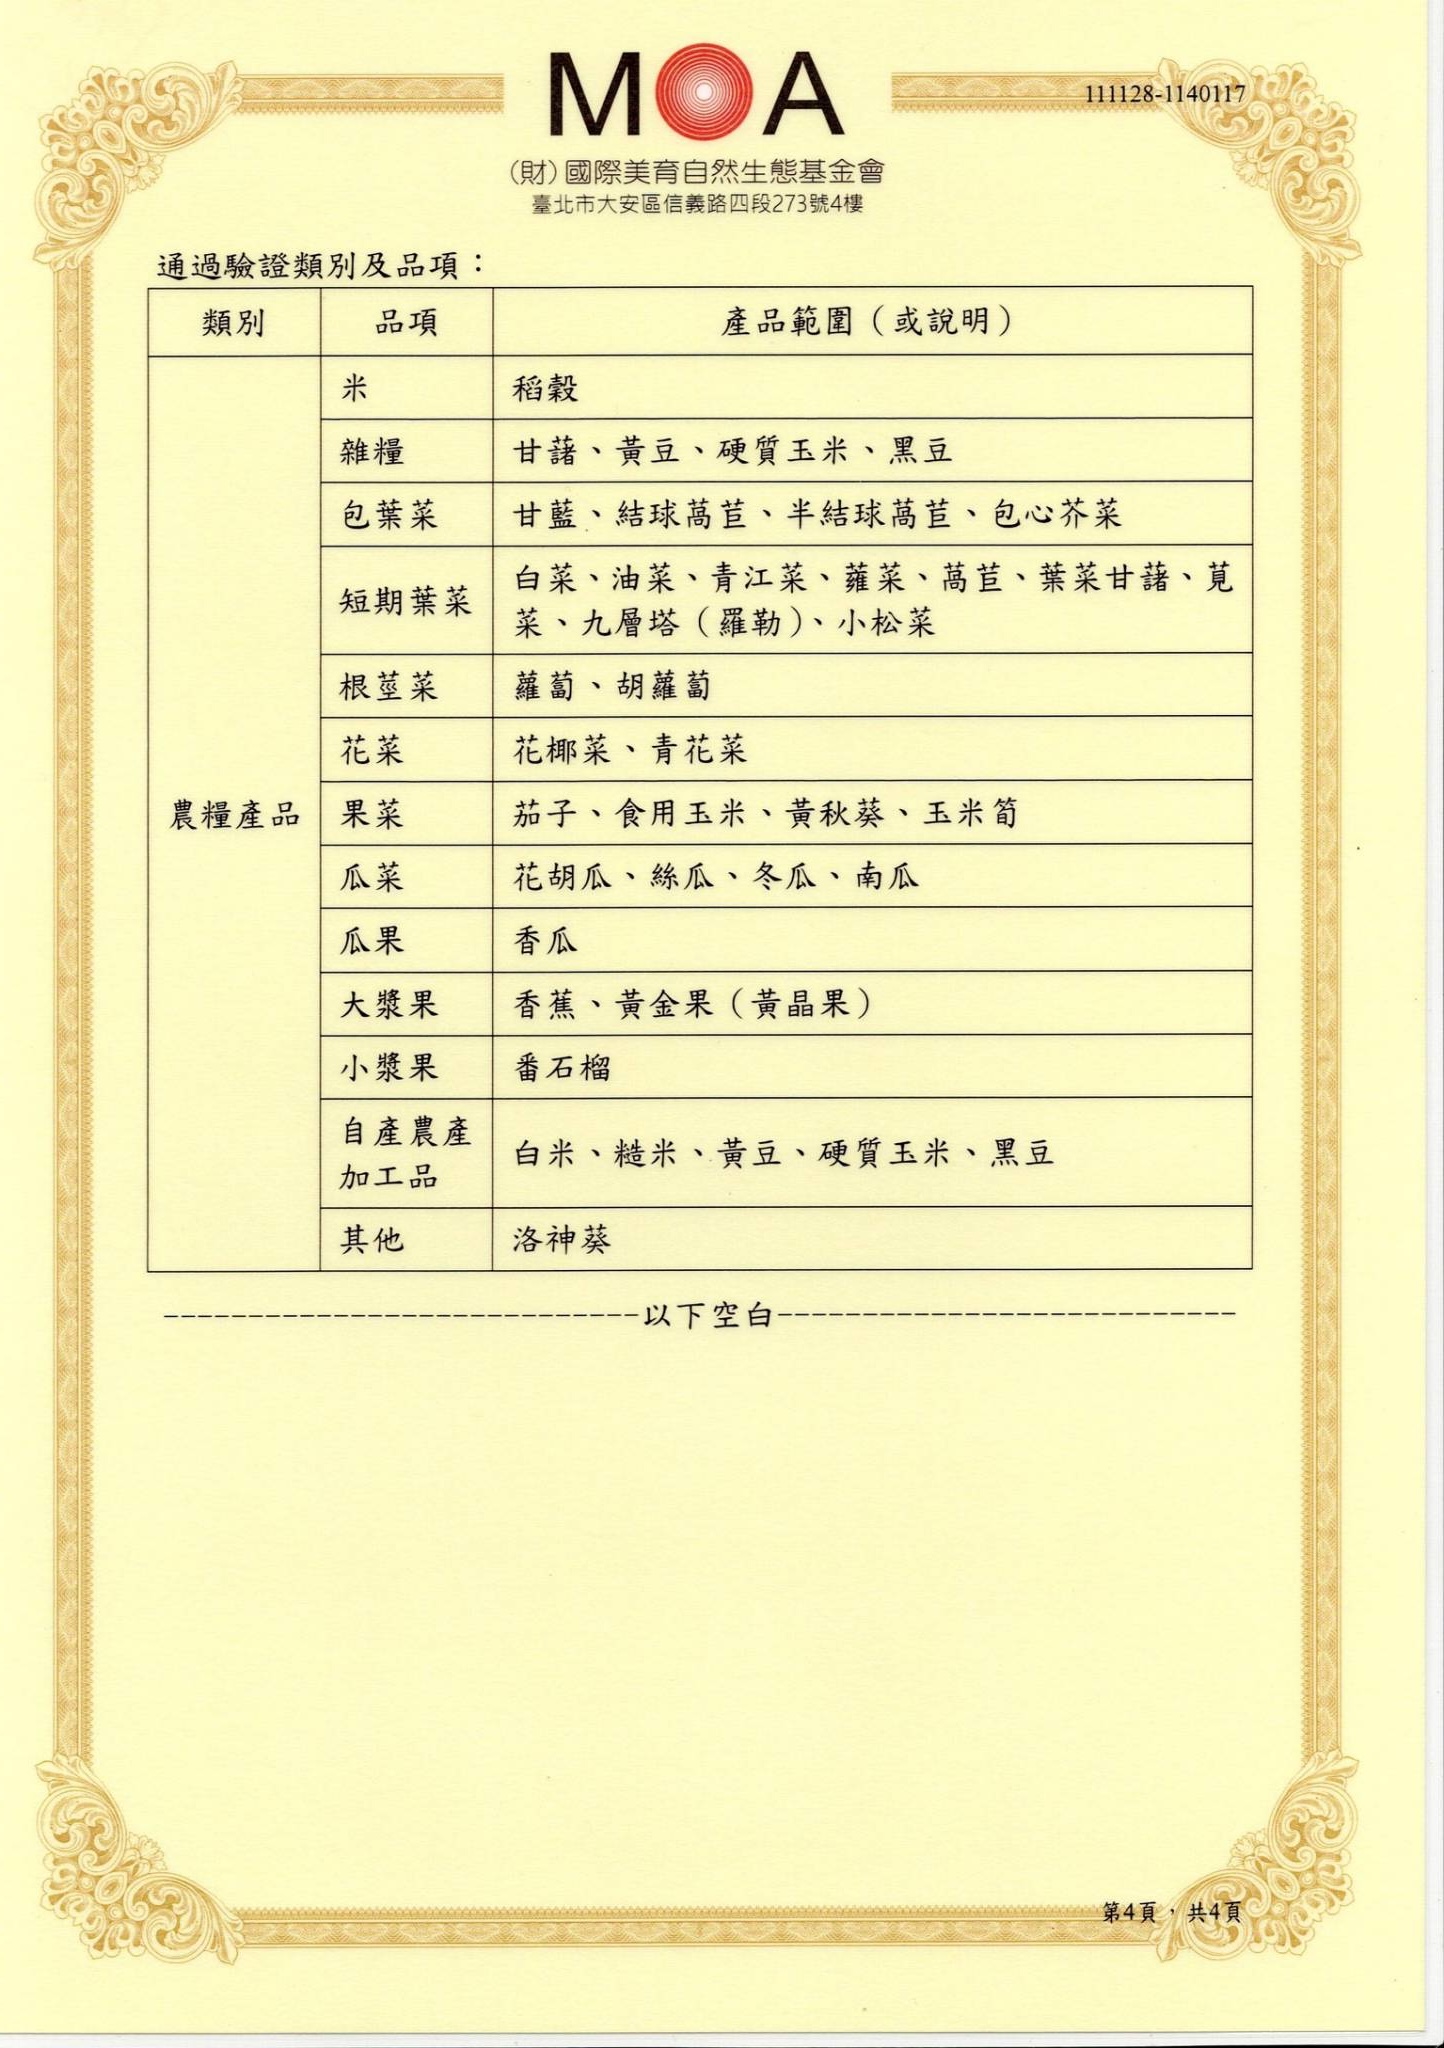 MOA
111128-1140117
(財)國際美育自然生態基金會
臺北市大安區信義路四段273號4樓
通過驗證類別及品項：
類別 品項 產品範圍（或說明）
農糧產品
米 稻穀
雜糧 甘藷、黃豆、硬質玉米、黑豆
包葉菜 甘藍、結球萵苣、半結球萵苣、包心芥菜
短期葉菜 白菜、油菜、青江菜、蕹菜、萵苣、葉菜甘藷、莧
菜、九層塔（羅勒）、小松菜
根莖菜 蘿蔔、胡蘿蔔
花菜 花椰菜、青花菜
果菜 茄子、食用玉米、黃秋葵、玉米筍
瓜菜 花胡瓜、絲瓜、冬瓜、南瓜
瓜果 香瓜
大漿果 香蕉、黃金果（黃晶果）
小漿果 番石榴
自產農產
加工品 白米、糙米、黃豆、硬質玉米、黑豆
其他 洛神葵
----------------------------以下空白---------------------------
第4頁，共4頁